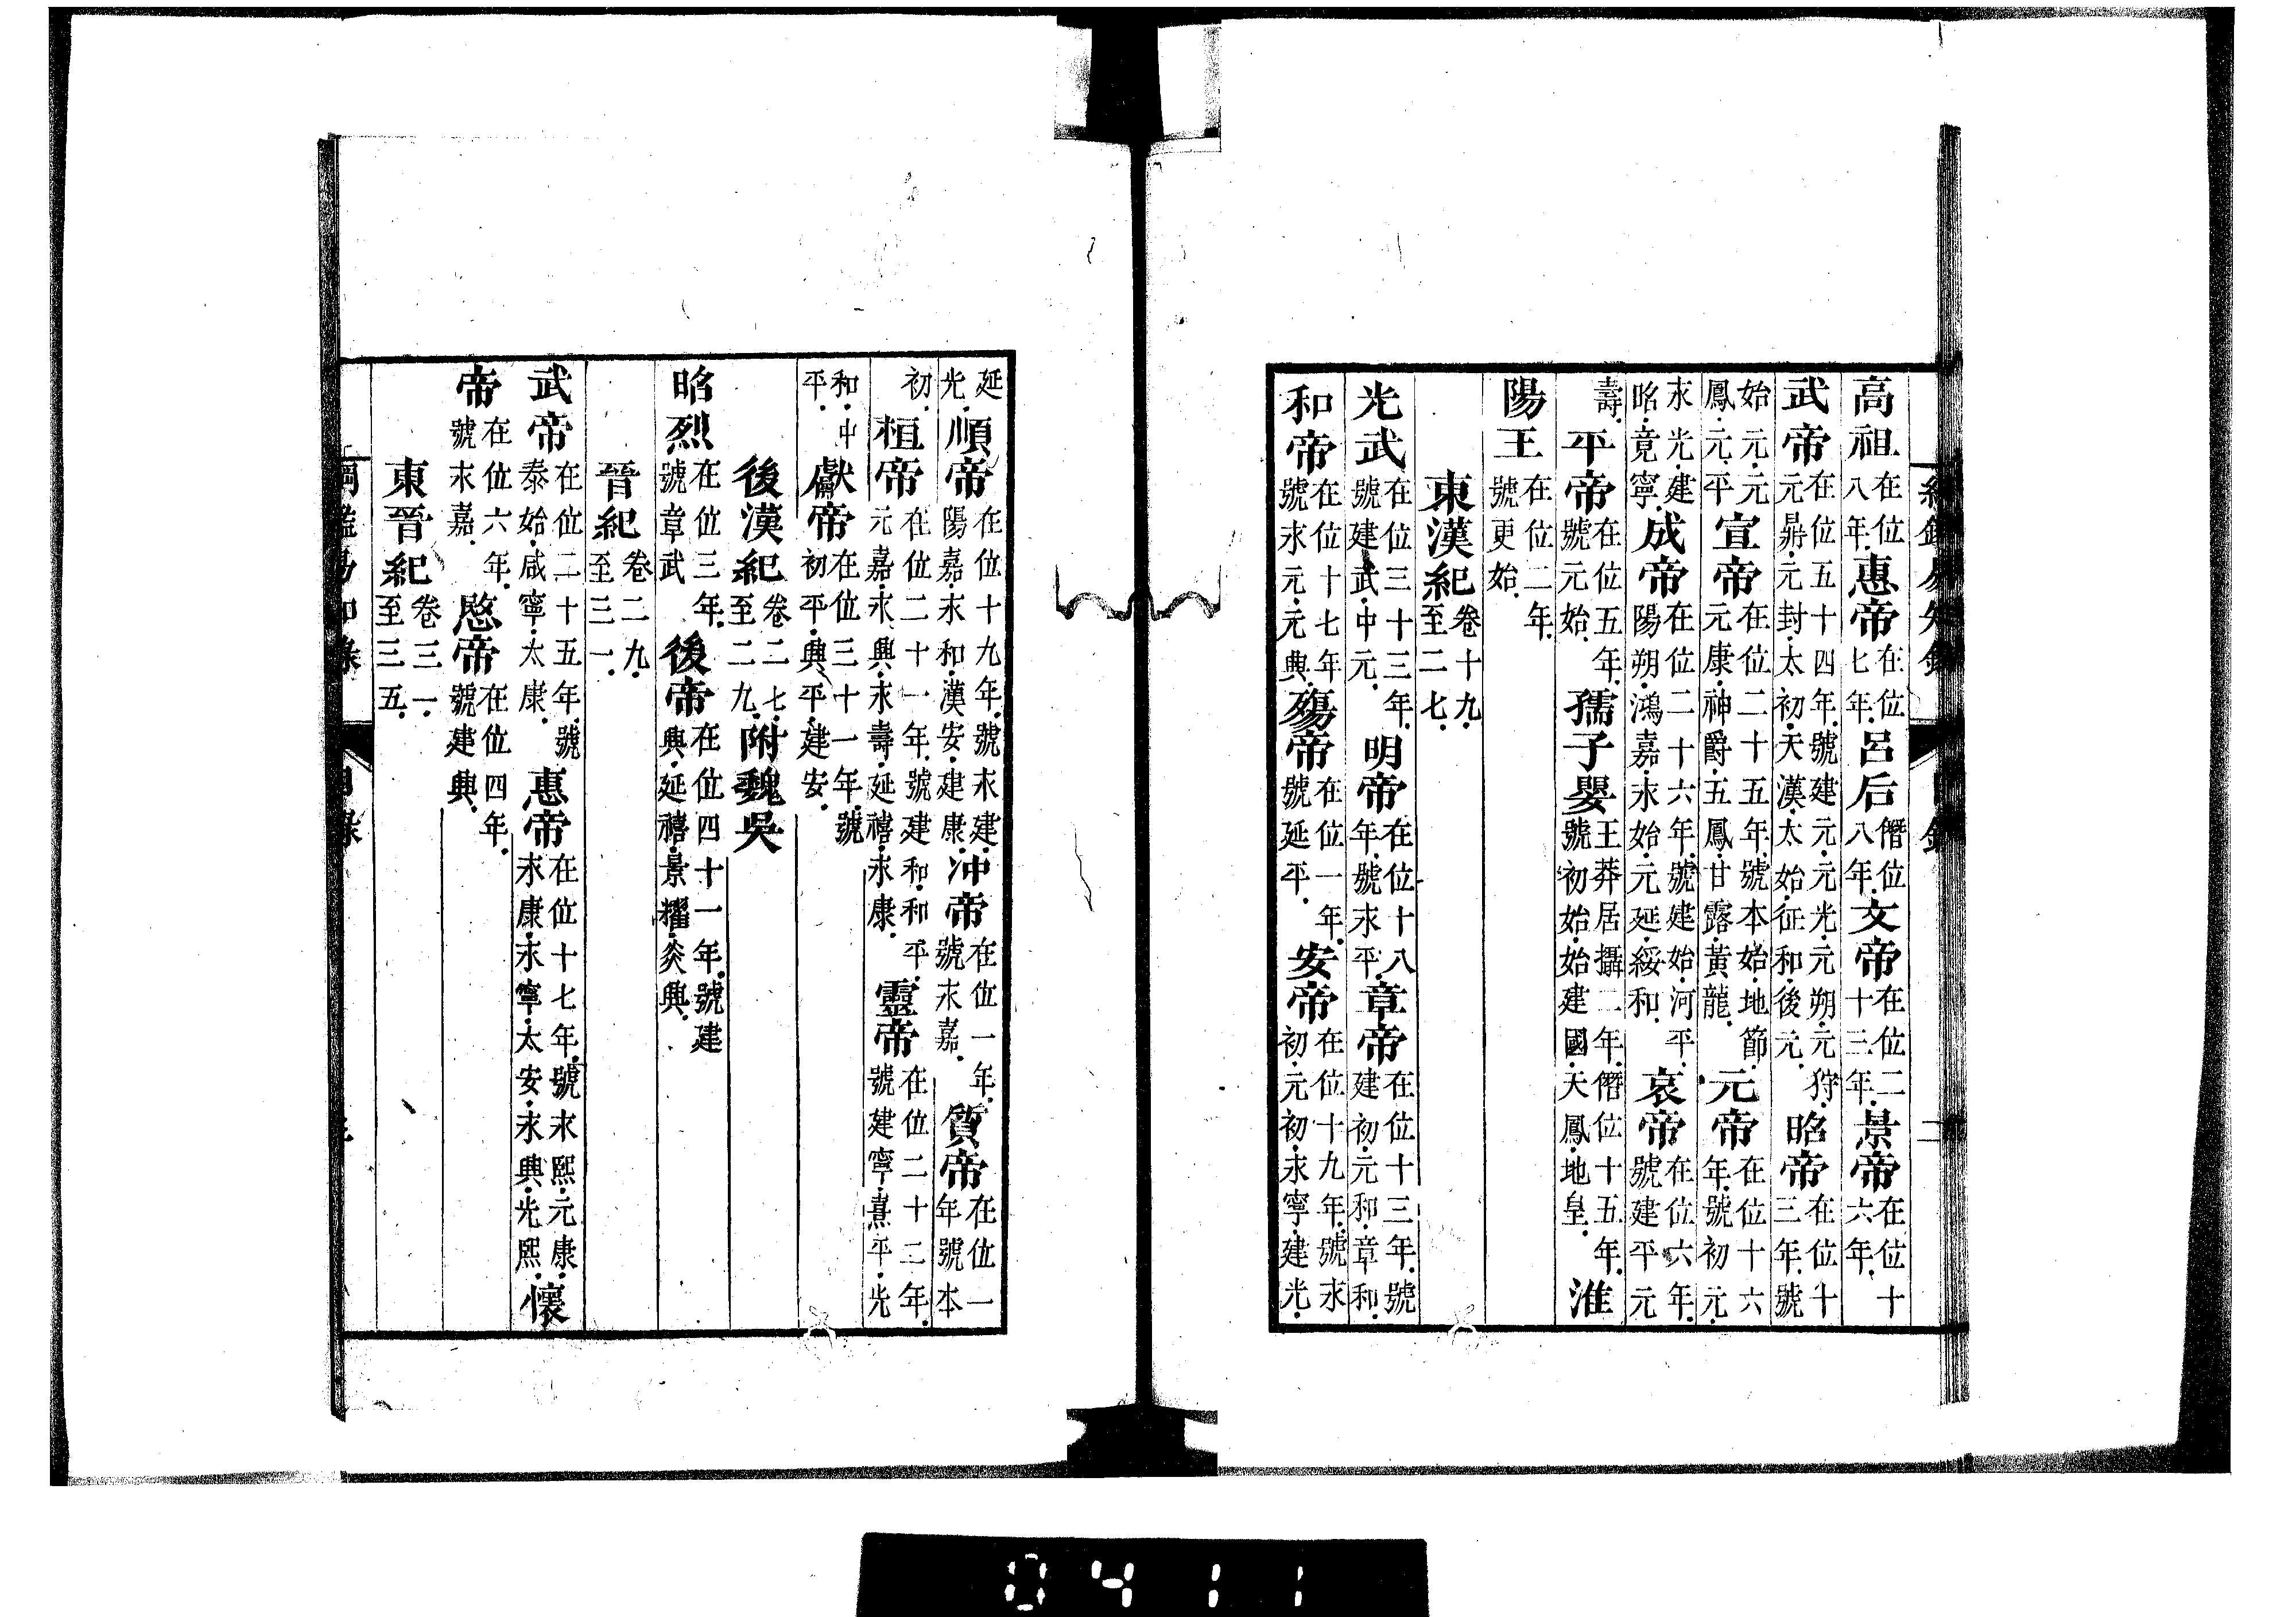 高祖在位八年.惠帝在位七年.呂后僭位八年.文帝在位二十三年.景帝在位十六年.
武帝在位五十四年.號建元.元光.元朔.元狩.元鼎.元封.太初.天漢.太始.征和.後元.昭帝在位十三年.號
始元.元鳳.元平.宣帝在位二十五年.號本始.地節.元康.神爵.五鳳.甘露.黃龍.元帝在位十六年.號初元.
永光.建昭.竟寧.成帝在位二十六年.號建始.河平.陽朔.鴻嘉.永始.元延.綏和.哀帝在位六年.號建平.元
壽.平帝在位五年.號元始.孺子嬰王莽居攝二年.僭位十五年.號初始.始建國.天鳳.地皇.淮
陽王在位二年.號更始.
東漢紀卷十九.至二七.
光武在位三十三年.號建武.中元.明帝在位十八年.號永平.章帝在位十三年.號建初.元和.章和.
和帝在位十七年號永元.元興.殤帝在位一年.號延平.安帝在位十九年.號永初.元初.永寧.建光.
延光.順帝在位十九年.號永建.陽嘉.永和.漢安.建康.沖帝在位一年.號永嘉.質帝在位一年號本
初.桓帝在位二十一年.號建和.和平.元嘉.永興.永壽.延禧.永康.靈帝在位二十二年.號建寧.熹平.光
和.中平.獻帝在位三十一年.號初平.興平.建安.
後漢紀卷二七.至二九.附魏吳
昭烈在位三年.號章武後帝在位四十一年.號建興.延禧.景耀.炎興.
晉紀卷二九.至三一.
武帝在位二十五年.號泰始.咸寧.太康.惠帝在位十七年.號永熙.元康.永康.永寧.太安.永興.光熙.懷
帝在位六年.號永嘉.愍帝在位四年.號建興.
東晉紀卷三一.至三五.
0411